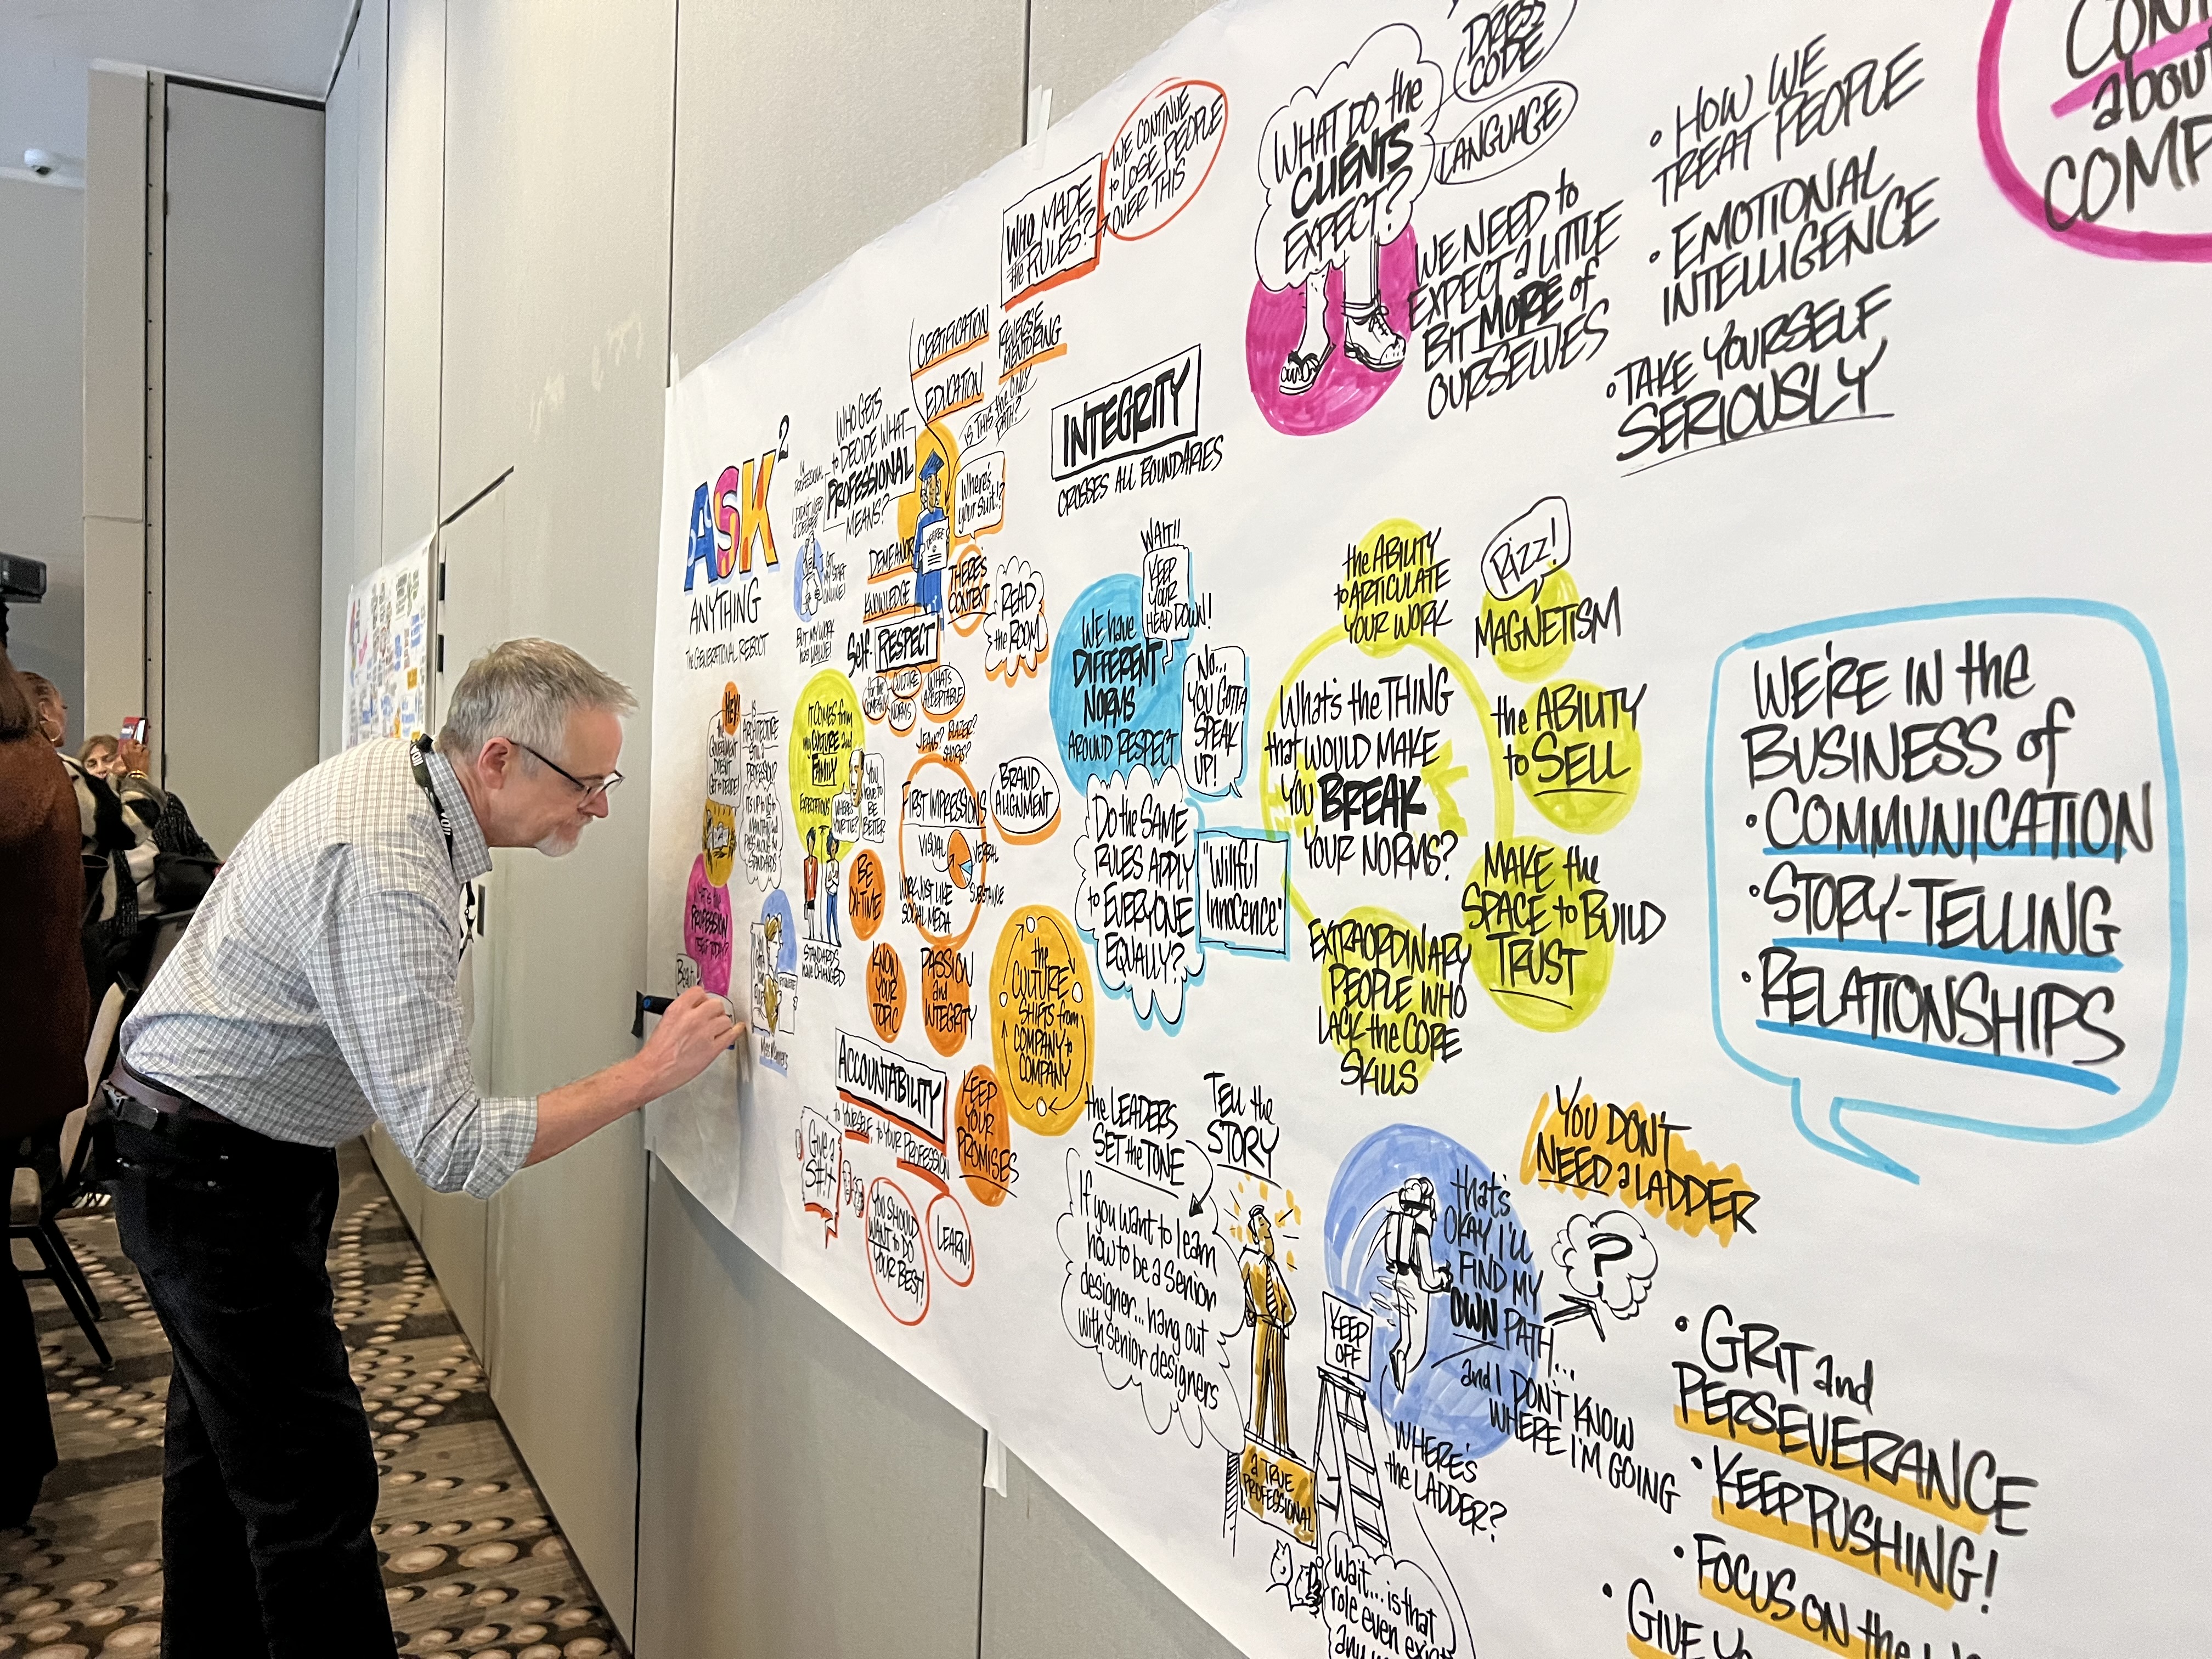 ASK²
ANYTHING
The GENERATIONAL REBOOT
WHO GETS
to DECIDE WHAT
PROFESSIONAL
MEANS?
CERTIFICATION
EDUCATION
REVERSE
MENTORING
IS THIS the ONLY
PATH?
WHO MADE
the RULES?
WE CONTINUE
to LOSE PEOPLE
OVER THIS
Where's
your suit!?
DEGREE
DEMEANOR
KNOWLEDGE
THERE'S
CONTEXT
READ
the ROOM
Self-RESPECT
CULTURE
NORMS
WHAT'S
ACCEPTABLE
JEANS? BLAZER?
SHORTS?
BUT MY WORK
HAS VALUE!
HEY!
IT COMES from
my CULTURE and
FAMILY
EXPECTATIONS
YOU
HAVE to
BE
BETTER
STANDARDS
HAVE CHANGED
FIRST IMPRESSIONS
VISUAL
VERBAL
SUBSTANCE
WORK JUST LIKE
SOCIAL MEDIA
BRAND
ALIGNMENT
BE
ON-TIME
KNOW
YOUR
TOPIC
PASSION
and
INTEGRITY
the
CULTURE
SHIFTS from
COMPANY to
COMPANY
ACCOUNTABILITY
to YOURSELF, to YOUR PROFESSION
KEEP
YOUR
PROMISES
Give a
S#!+
YOU SHOULD
WANT to DO
YOUR BEST!
LEARN!
INTEGRITY
CROSSES ALL BOUNDARIES
WHAT DO the
CLIENTS
EXPECT?
DRESS
CODE
LANGUAGE
WE NEED to
EXPECT a LITTLE
BIT MORE of
OURSELVES
• HOW WE
TREAT PEOPLE
• EMOTIONAL
INTELLIGENCE
• TAKE YOURSELF
SERIOUSLY
about
WAIT!!
KEEP
YOUR
HEAD DOWN!
WE have
DIFFERENT
NORMS
AROUND RESPECT
NO...
YOU GOTTA
SPEAK
UP!
Do the SAME
RULES APPLY
to EVERYONE
EQUALLY?
"Willful
Innocence"
the ABILITY
to ARTICULATE
YOUR WORK
Rizz!
MAGNETISM
What's the THING
that WOULD MAKE
YOU BREAK
YOUR NORMS?
the ABILITY
to SELL
MAKE the
SPACE to BUILD
TRUST
EXTRAORDINARY
PEOPLE WHO
LACK the CORE
SKILLS
WE'RE IN the
BUSINESS of
• COMMUNICATION
• STORY-TELLING
• RELATIONSHIPS
the LEADERS
SET the TONE
TELL the
STORY
If you want to learn
how to be a senior
designer... hang out
with senior designers
a TRUE
PROFESSIONAL
KEEP
OFF
that's
OKAY I'LL
FIND MY
OWN PATH...
and I DON'T KNOW
WHERE I'M GOING
YOU DON'T
NEED a LADDER
?
WHERE'S
the LADDER?
Wait... is that
role even exist
• GRIT and
PERSEVERANCE
• KEEP PUSHING!
• FOCUS ON the
• GIVE